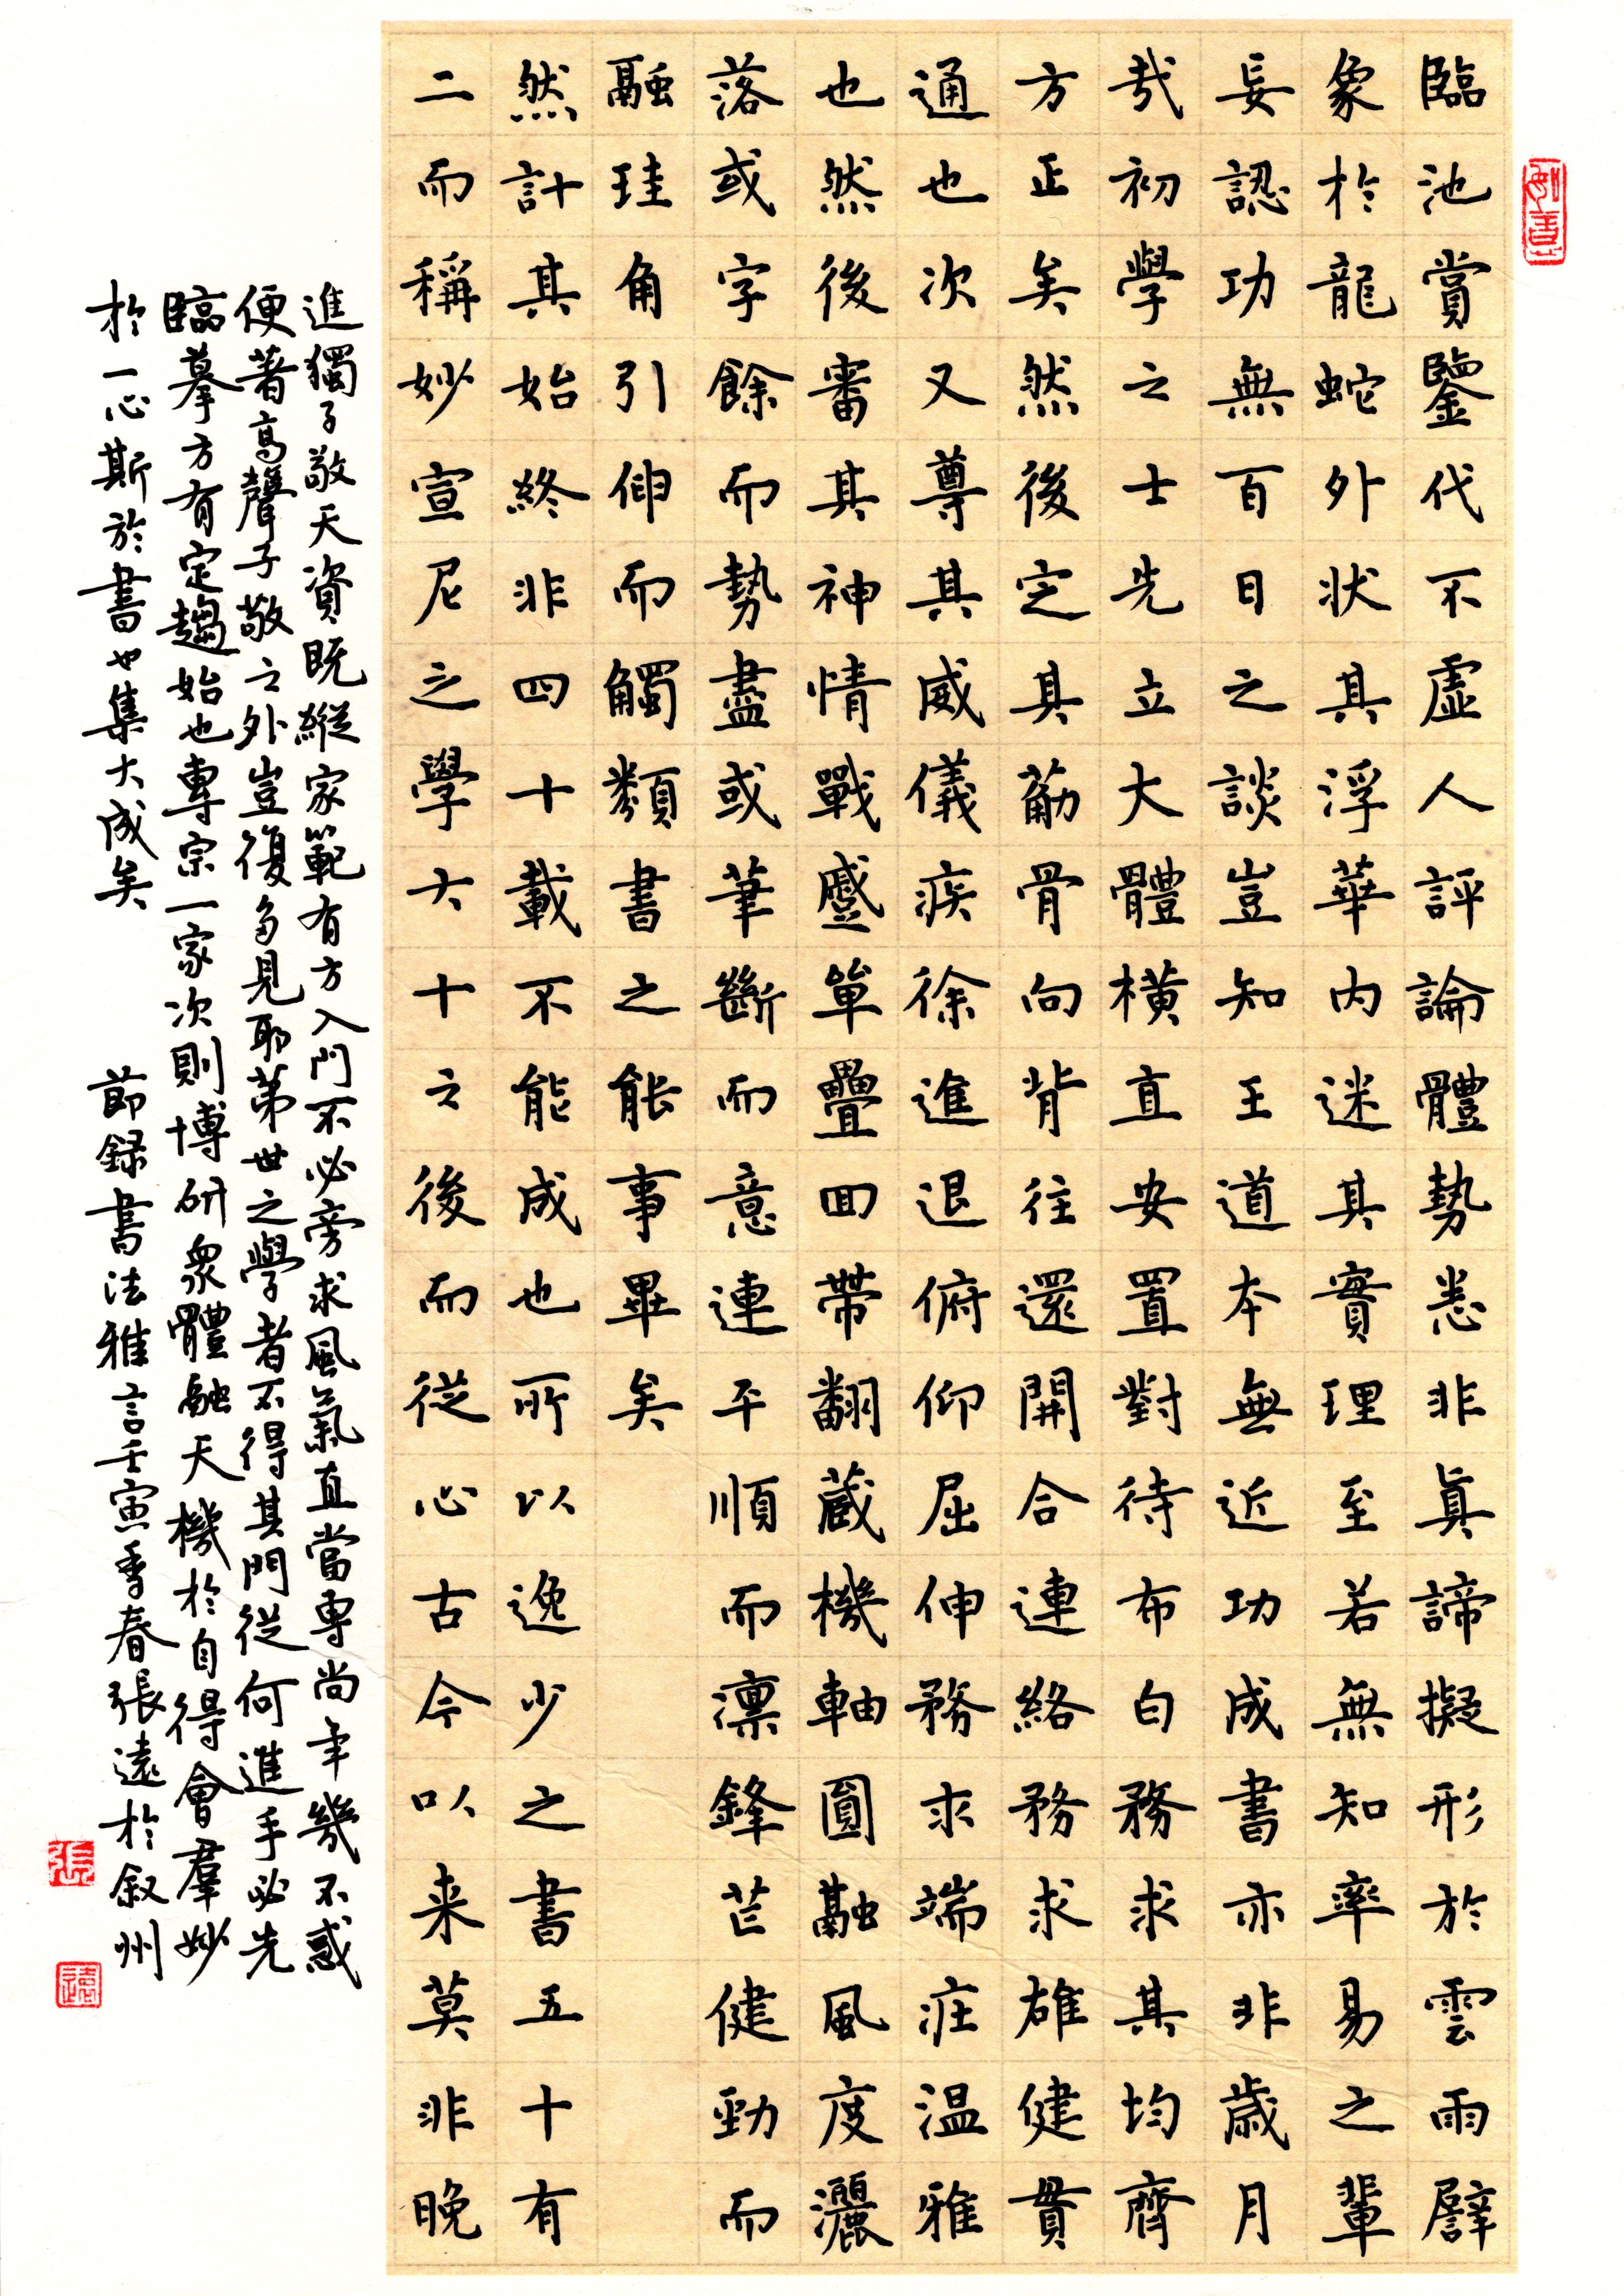 臨池賞鑒代不虛人評論體勢悉非真諦擬形於雲雨譬
象於龍蛇外狀其浮華內迷其實理至若無知率易之輩
妄認功無百日之談豈知王道本無近功成書亦非歲月
哉初學之士先立大體橫直安置對待布白務求其均齊
方正矣然後定其筋骨向背往還開合連絡務求雄健貫
通也次又尊其威儀疾徐進退俯仰屈伸務求端莊温雅
也然後審其神情戰蹙單疊回帶翻藏機軸圓融風度灑
落或字餘而勢盡或筆斷而意連平順而凛鋒芒健勁而
融珪角引伸而觸類書之能事畢矣
然計其始終非四十載不能成也所以逸少之書五十有
二而稱妙宣尼之學六十之後而從心古今以来莫非晚
進獨子敬天資既縱家範有方入門不必旁求風氣直當專尚年幾不惑
便著高聲子敬之外豈復多見耶第世之學者不得其門從何進手必先
臨摹方有定趨始也專宗一家次則博研衆體融天機於自得會羣妙
於一心斯於書也集大成矣 節録書法雅言壬寅季春張遠於叙州
張
遠